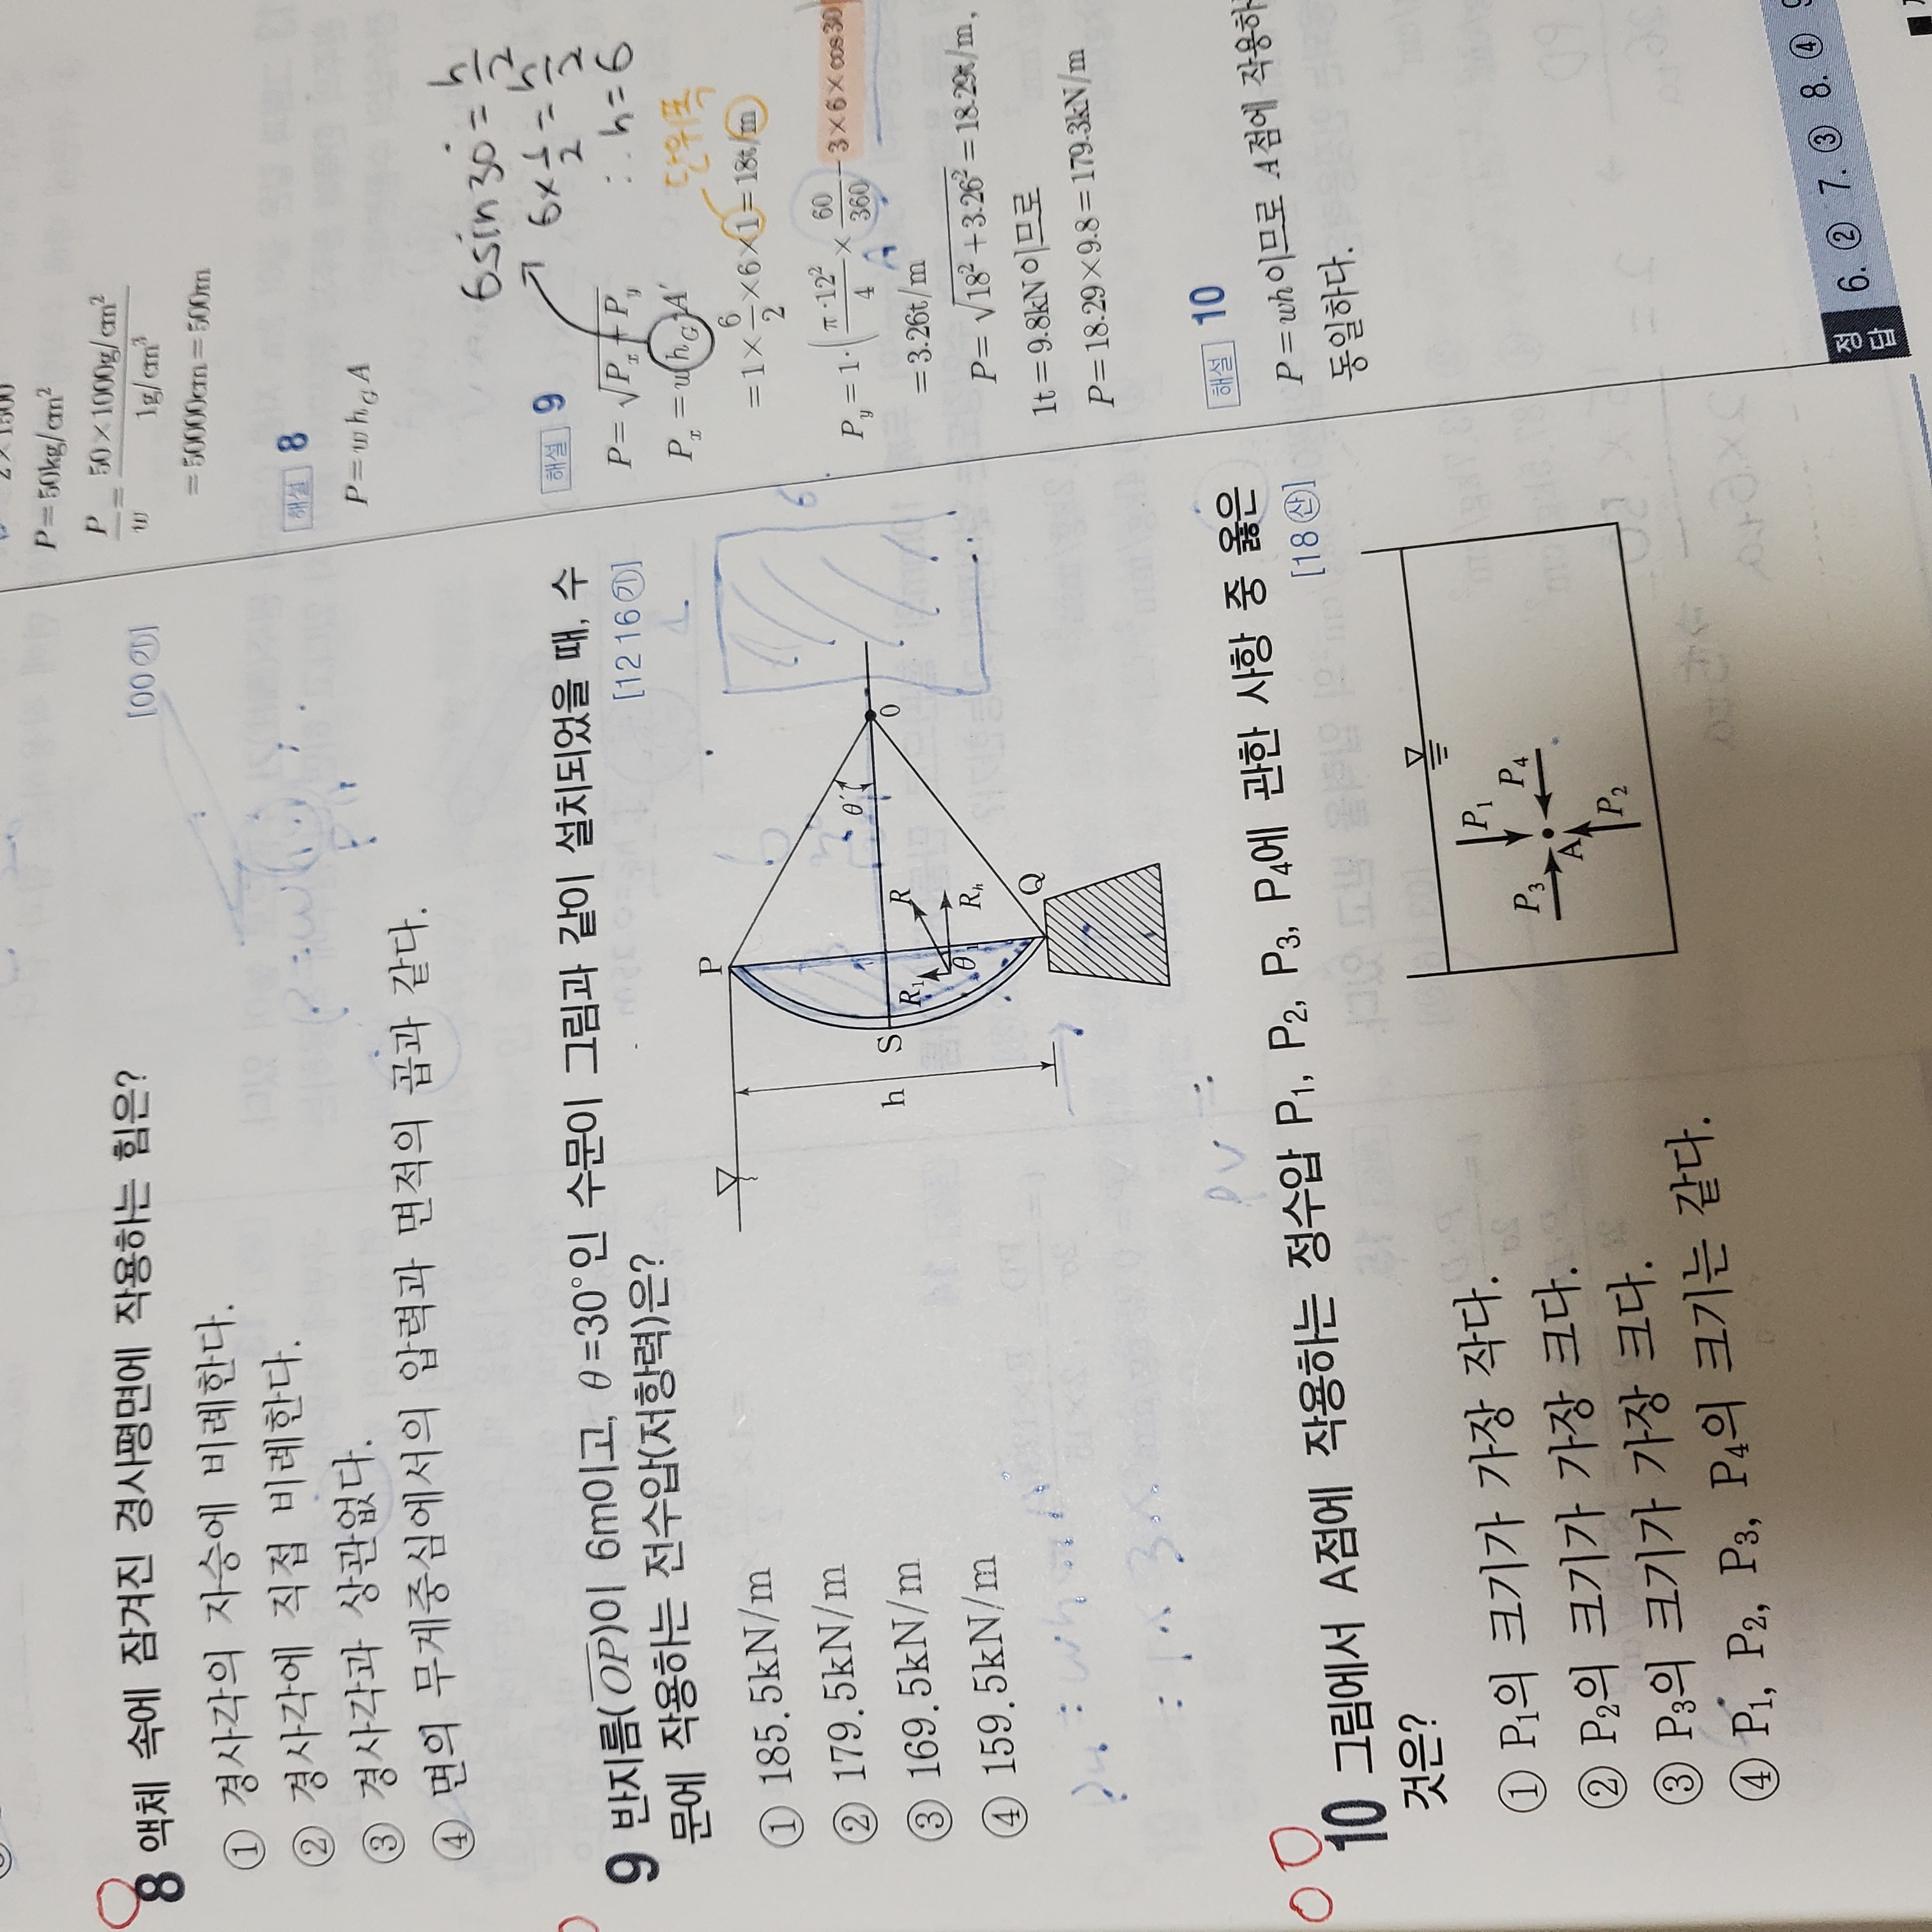 8 액체 속에 잠겨진 경사평면에 작용하는 힘은?
[00㉮]
① 경사각의 자승에 비례한다.
② 경사각에 직접 비례한다.
③ 경사각과 상관없다.
④ 면의 무게중심에서의 압력과 면적의 곱과 같다.
9 반지름(OP)이 6m이고, θ=30°인 수문이 그림과 같이 설치되었을 때, 수
문에 작용하는 전수압(저항력)은?
[12 16㉮]
① 185.5kN/m
② 179.5kN/m
③ 169.5kN/m
④ 159.5kN/m
P
S
h
θ
R₁
R
Rₕ
θ′
0
Q
10 그림에서 A점에 작용하는 정수압 P₁, P₂, P₃, P₄에 관한 사항 중 옳은
것은?
[18㉯]
① P₁의 크기가 가장 작다.
② P₂의 크기가 가장 크다.
③ P₃의 크기가 가장 크다.
④ P₁, P₂, P₃, P₄의 크기는 같다.
P₁
P₃
P₄
A
P₂
P=50kg/cm²
P/w = 50×1000g/cm² / 1g/cm³
=50000cm=500m
해설 8
P=wh_G A
해설 9
6sin30°=h/2
6×1/2=h/2
∴ h=6
P=√(Pₓ+P_y)
Pₓ=wh_G A′
단위폭
=1×6/2×6×1=18t/m
P_y=1·(π·12²/4×60/360-3×6×cos30
A
=3.26t/m
P=√(18²+3.26²)=18.29t/m,
1t=9.8kN이므로
P=18.29×9.8=179.3kN/m
해설 10
P=wh이므로 A점에 작용하
동일하다.
정답 6. ② 7. ③ 8. ④